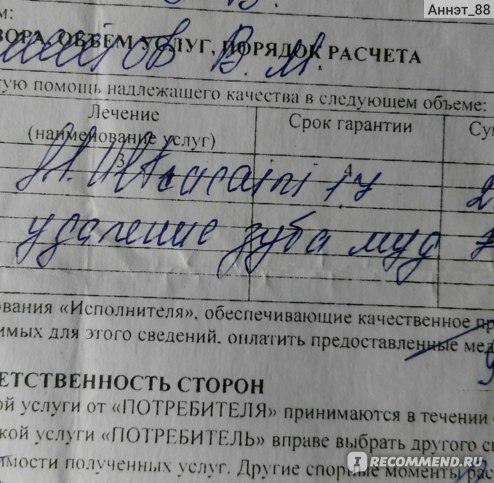 Аннэт_88
ВОРА, ОБЪЕМ УСЛУГ, ПОРЯДОК РАСЧЕТА
В. М.
тую помощь надлежащего качества в следующем объеме:
Лечение Срок гарантии Су
(наименование услуг)
3 4
1,7 2
удаление зуба муд
ования «Исполнителя», обеспечивающие качественное пр
имых для этого сведений, оплатить предоставленные мед
ЕТСТВЕННОСТЬ СТОРОН
ой услуги от «ПОТРЕБИТЕЛЯ» принимаются в течении
кой услуги «ПОТРЕБИТЕЛЬ» вправе выбрать другого сп
имости полученных услуг. Другие спорные моменты рас
IRECOMMEND.RU